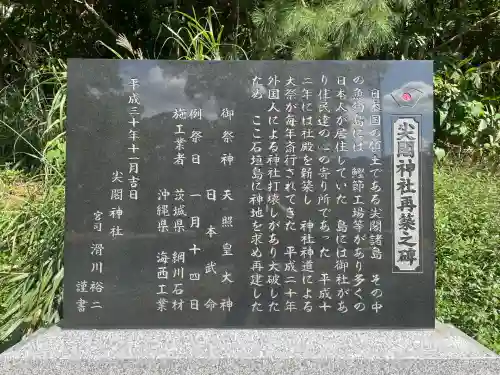 尖閣神社再築之碑
日本国の領土である尖閣諸島 その中
の魚釣島には 鰹節工場等があり多くの
日本人が居住していた 島には御社があ
り住民達の心の寄り所であった 平成十
二年には社殿を新築し 神社神道による
大祭が毎年斎行されてきた 平成二十年
外国人による神社打壊しがあり大破した
ため ここ石垣島に神地を求め再建した
御祭神 天照皇大神
日本武命
例祭日 一月十四日
施工業者 茨城県 網川石材
沖縄県 海西工業
平成三十年十一月吉日
尖閣神社
宮司 滑川裕二
謹書